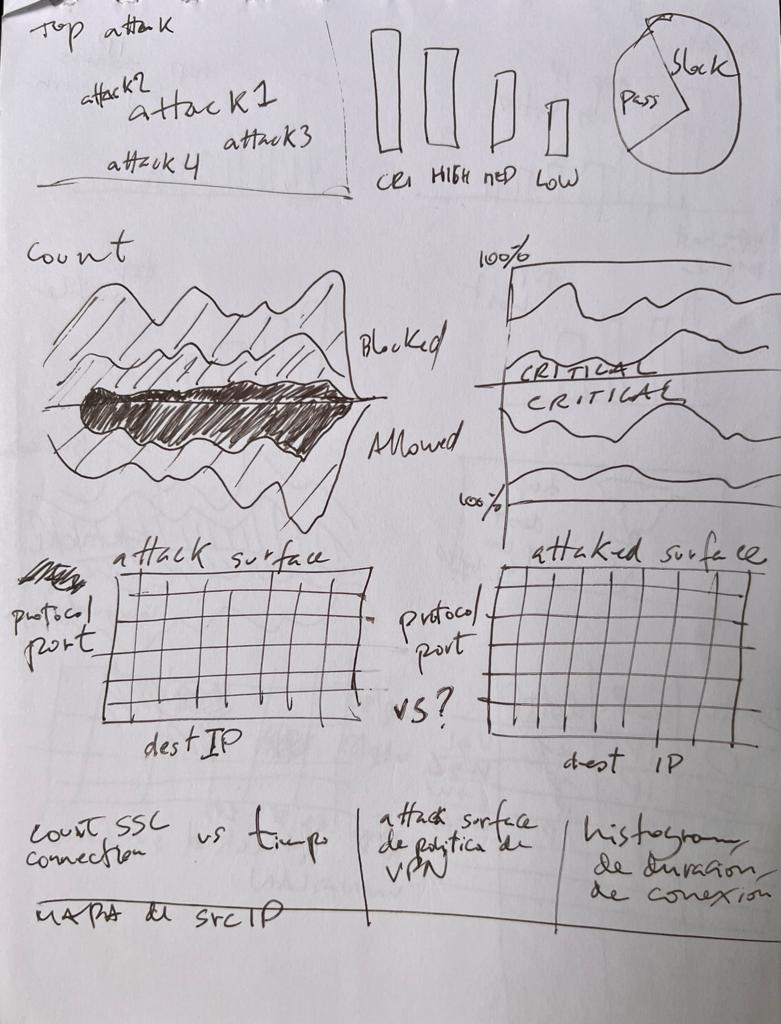 Top attack
attack2
attack1
attack3
attack4
CRI HIGH MED LOW
Block
Pass
Count
Blocked
Allowed
100%
CRITICAL
CRITICAL
100%
attack surface
protocol
port
dest IP
attaked surface
protocol
port
vs?
dest IP
count SSL
connection
vs tiempo
MAPA de src IP
attack surface
de politica de
VPN
histograma
de duracion
de conexion